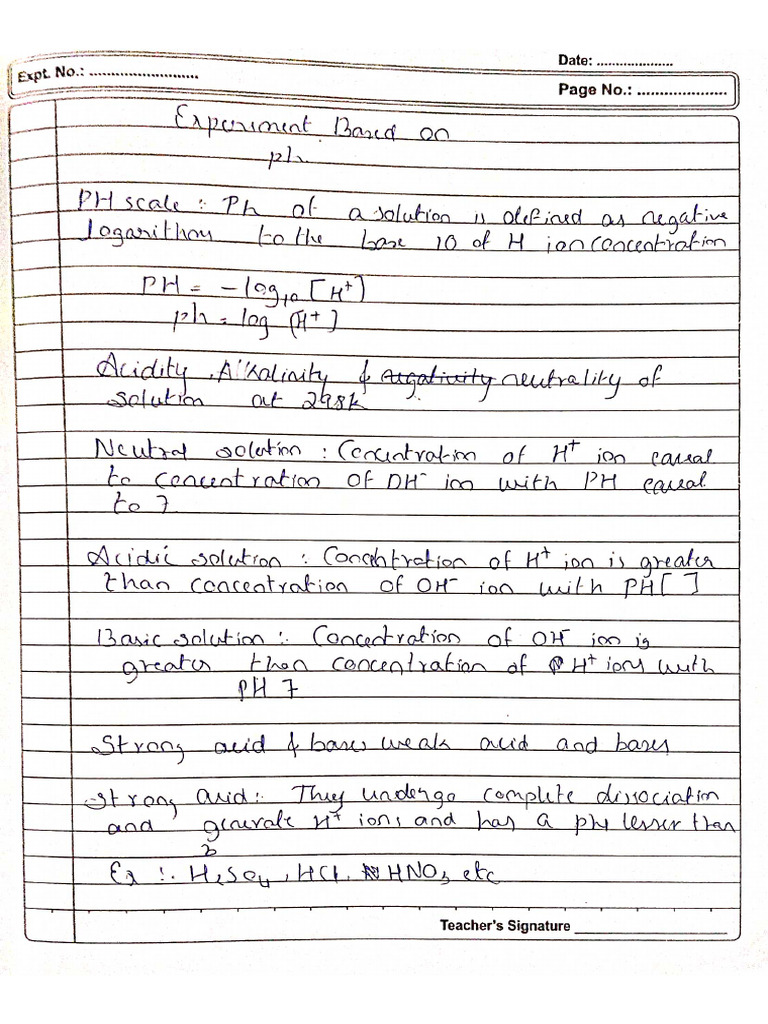 Date: ....................
Expt. No.: ..........................
Page No.: .....................
Experiment Based on
ph
PH scale : Ph of a solution is defined as negative
logarithm to the base 10 of H ion concentration
PH = -log₁₀ [H⁺]
ph = log [H⁺]
Acidity, Alkalinity & negativity neutrality of
solution at 298k
Neutral solution : Concentration of H⁺ ion
to concentration of OH⁻ ion with PH
to 7
Acidic solution : Concentration of H⁺ ion is greater
than concentration of OH⁻ ion with PH[ ]
Basic solution : Concentration of OH⁻ ion is
greater than concentration of H⁺ ions with
PH 7
Strong acid & bases weak acid and bases
Strong acid : They undergo complete dissociation
and generate H⁺ ions and has a ph lesser than
Ex : H₂SO₄, HCl, HNO₃ etc
Teacher's Signature